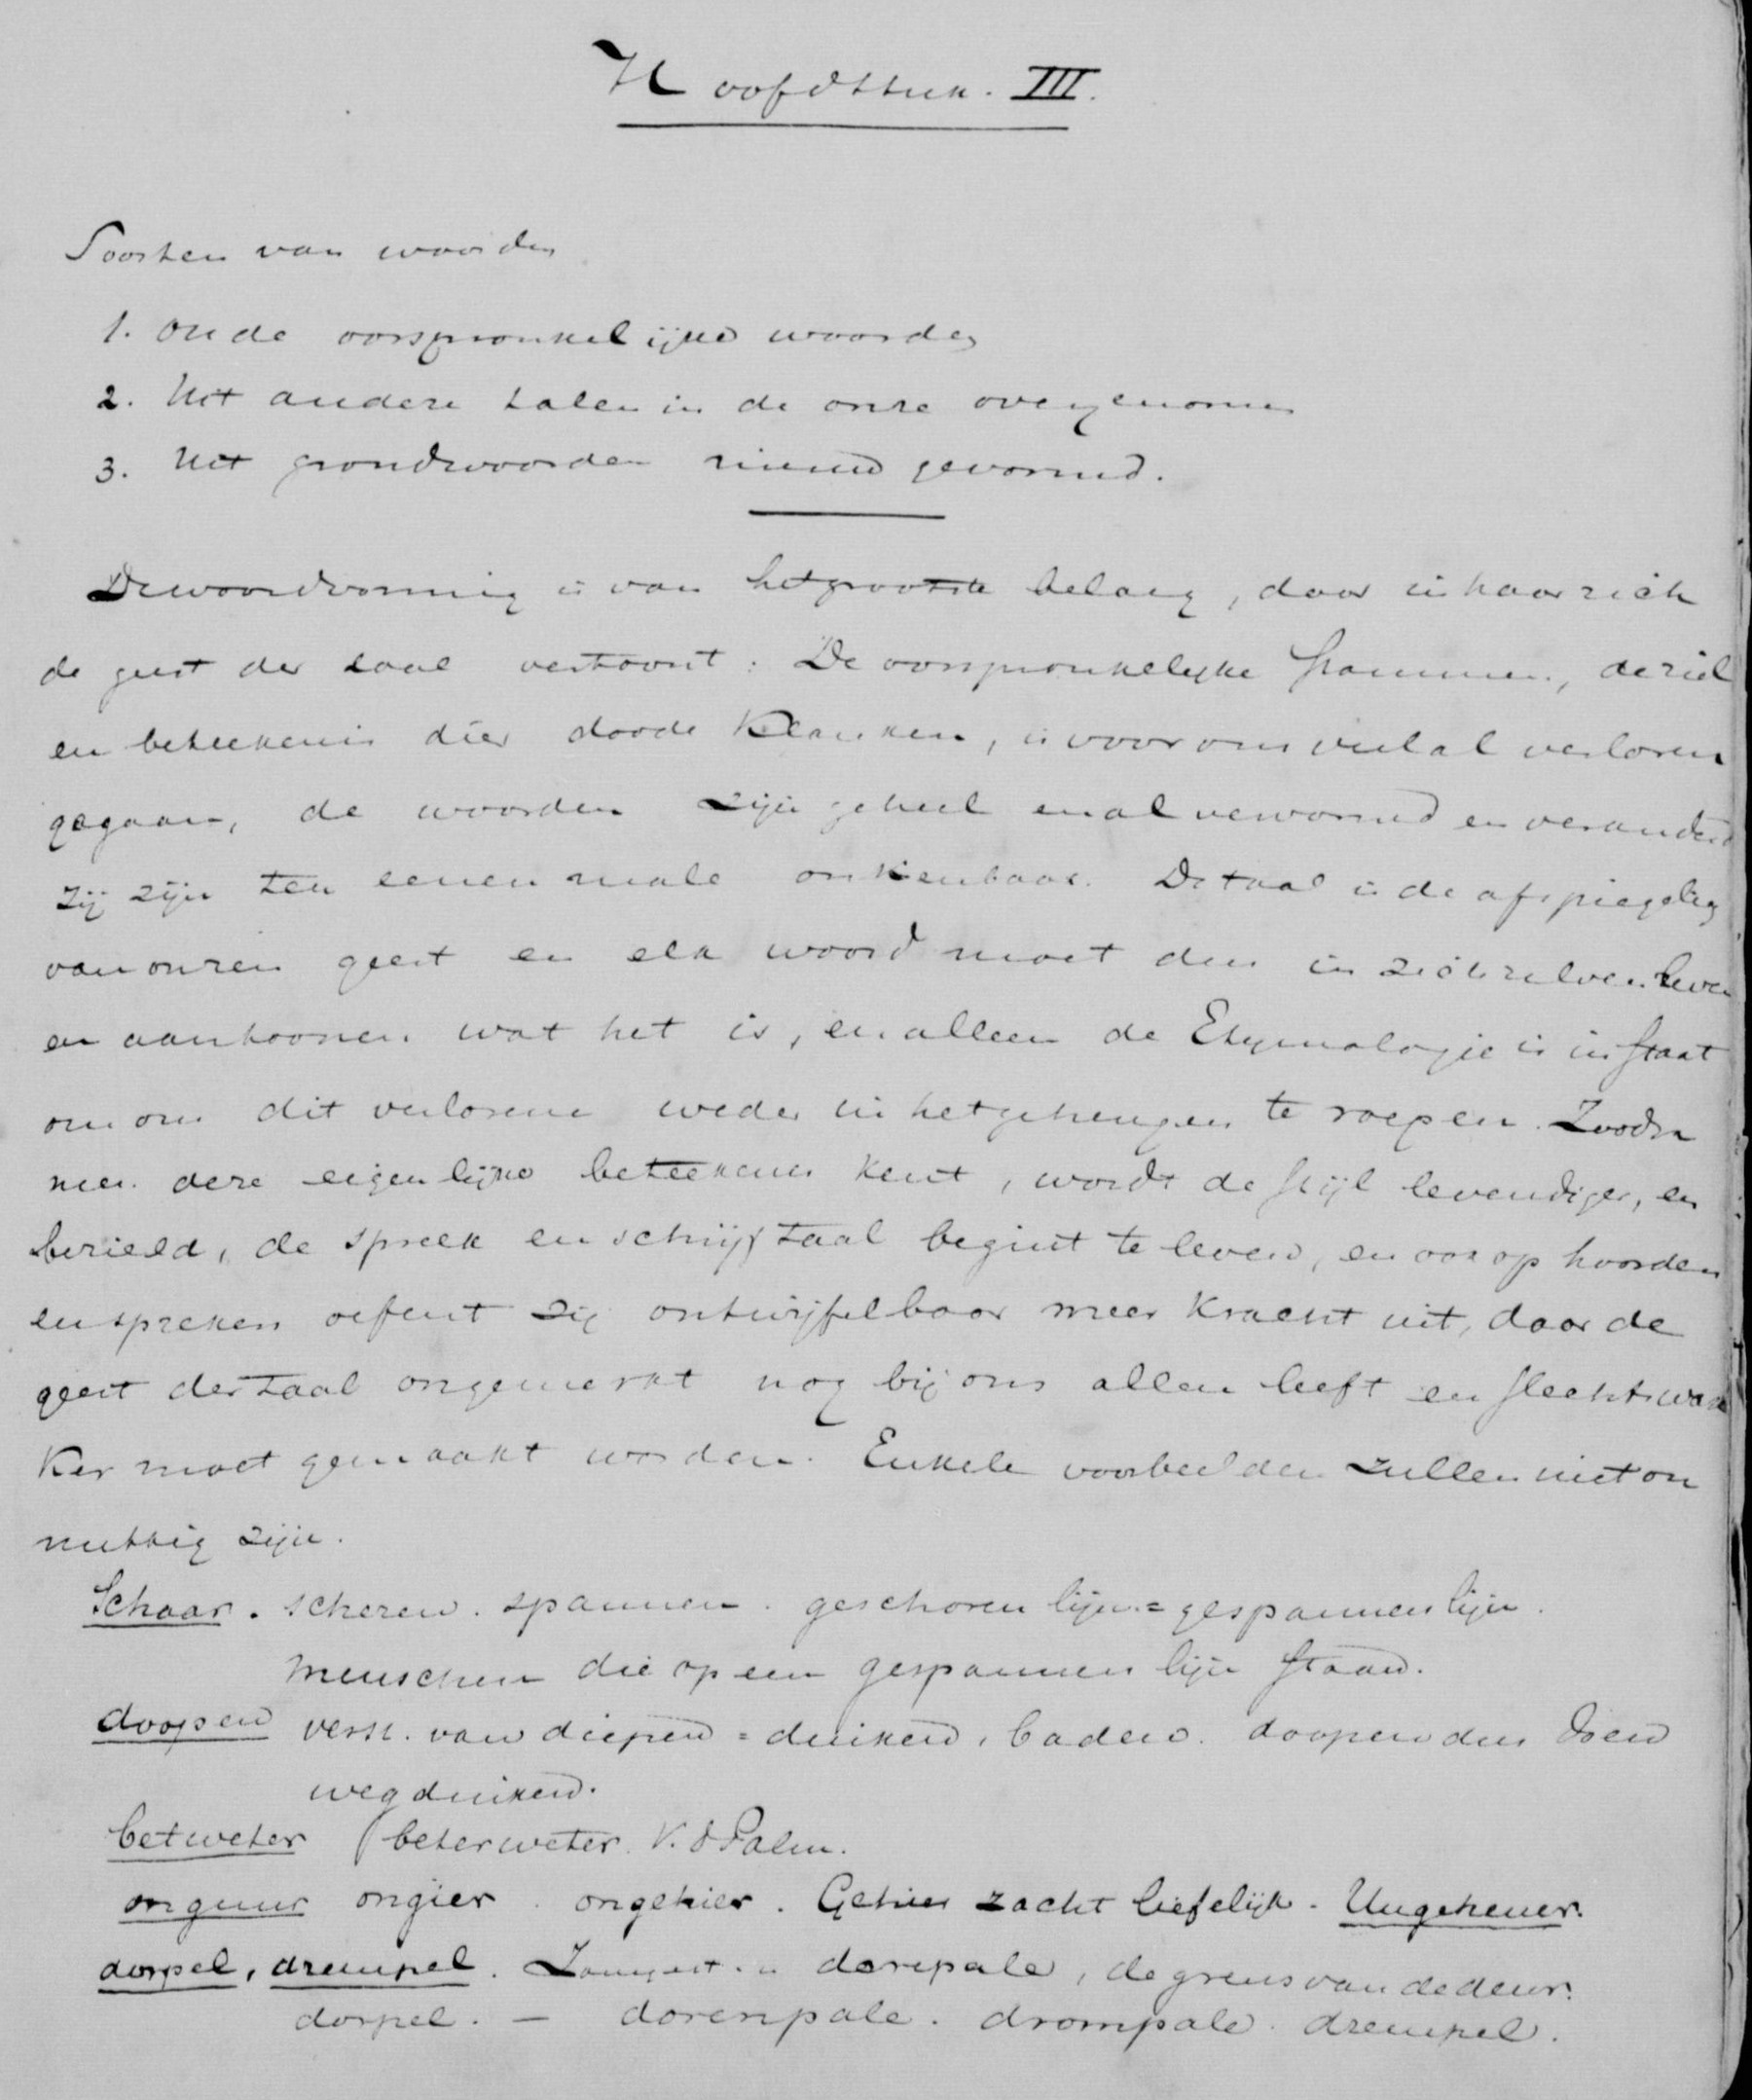 Hoofdstuk. III.
Soorten van woorden
1. Oude oorspronkelijke woorden
2. Uit andere talen in de onze overgenomen
3. Uit grondwoorden nieuw gevormd.
De woordvorming is van het grootste belang, daar in haar zich
de geest der taal vertoont: De oorspronkelyke stammen, de ziel
en beteekenis dier doode klanken, is voor ons veelal verloren
gegaan, de woorden zijn geheel en al vervormd en veranderd
zij zijn ten eenen male onkenbaar. De taal is de afspiegeling
van onzen geest en elk woord moet dus in zich zelven leven
en aantoonen wat het is, en alleen de Etymologie is in staat
om ons dit verlorene weder in het geheugen te roepen. Zoodra
men deze eigenlijke beteekenis kent, wordt de stijl levendiger, en
bezield, de spreek en schrijf taal begint te leven, en ook op hoorden
en spreken oefent zij ontwijfelbaar meer kracht uit, daar de
geest der taal ongemerkt nog bij ons allen leeft en slechts wak
ker moet gemaakt worden. Enkele voorbeelden zullen niet on
nuttig zijn.
Schaar. scheren. spannen. geschoren lijn = gespannen lijn.
menschen die op een gespannen lijn staan.
doopen verst. van diepen = duiken, baden. doopen dus
wegduiken.
betweter beterweter. V. d Palm.
onguur ongier. ongehier. Gehier zacht liefelijk. Ungeheuer.
dorpel, drempel. dorepale, de grens van de deur.
dorpel. — dorenpale. drompale. drempel.